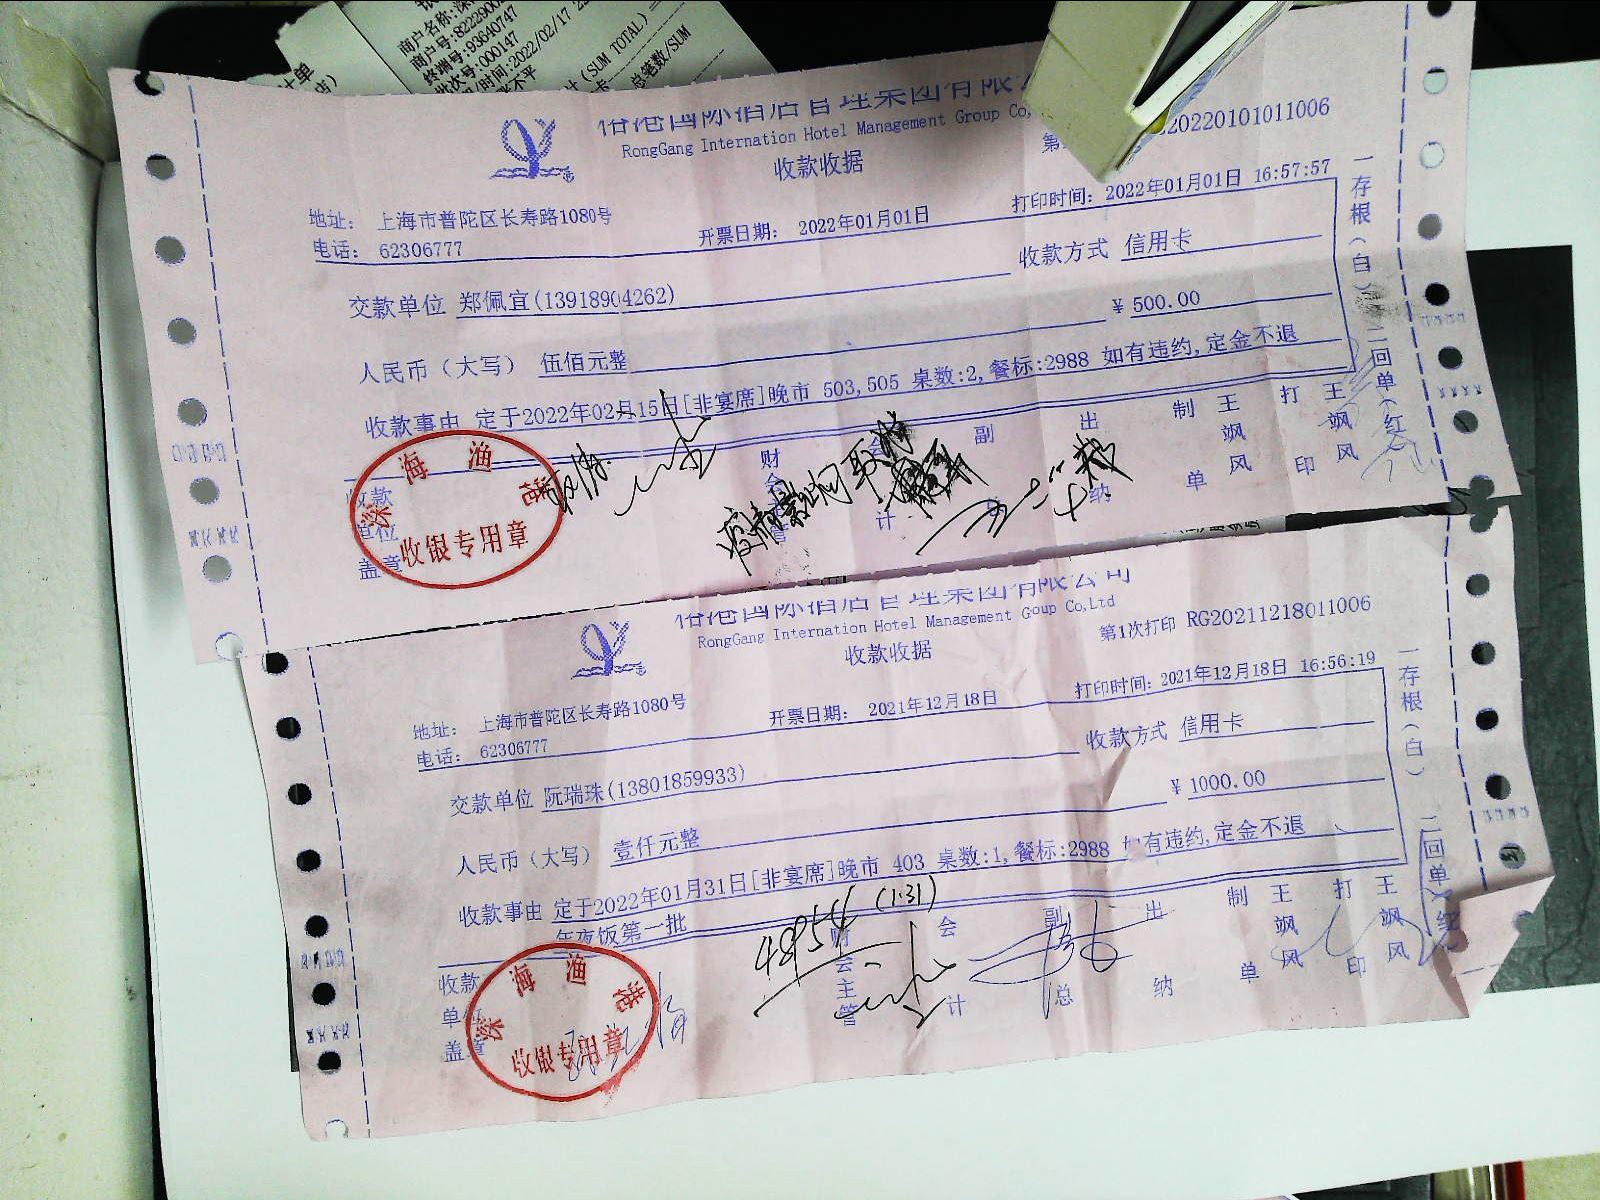 商户号:8222900
终端号:93640747
批次号:000147
时间:2022/02/17
(SUM TOTAL)
总笔数/SUM
RongGang Internation Hotel Management Group Co,
20220101011006
收款收据
地址: 上海市普陀区长寿路1080号
开票日期: 2022年01月01日
打印时间: 2022年01月01日 16:57:57
电话: 62306777
收款方式 信用卡
交款单位 郑佩宜(13918904262)
¥ 500.00
人民币(大写) 伍佰元整
收款事由 定于2022年02月15日[非宴席]晚市 503,505 桌数:2,餐标:2988 如有违约,定金不退
收款单位盖章
财会主管
会计
副总
出纳
制单
王飒风
打印
王飒风
一存根(白)二回单(红)
深海渔港
收银专用章
国际酒店管理集团有限公司
RongGang Internation Hotel Management Goup Co,Ltd
第1次打印 RG20211218011006
收款收据
地址: 上海市普陀区长寿路1080号
开票日期: 2021年12月18日
打印时间: 2021年12月18日 16:56:19
电话: 62306777
收款方式 信用卡
交款单位 阮瑞珠(13801859933)
¥ 1000.00
人民币(大写) 壹仟元整
收款事由 定于2022年01月31日[非宴席]晚市 403 桌数:1,餐标:2988 如有违约,定金不退
年夜饭第一批
48954 (1.31)
收款单位盖章
财会主管
会计
副总
出纳
制单
王飒风
打印
王飒风
一存根(白)二回单(红)
深海渔港
收银专用章